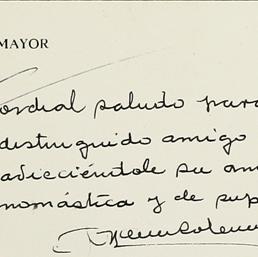 MAYOR
Cordial saludo para
distinguido amigo
adicciéndole su am
nomástica y de sup